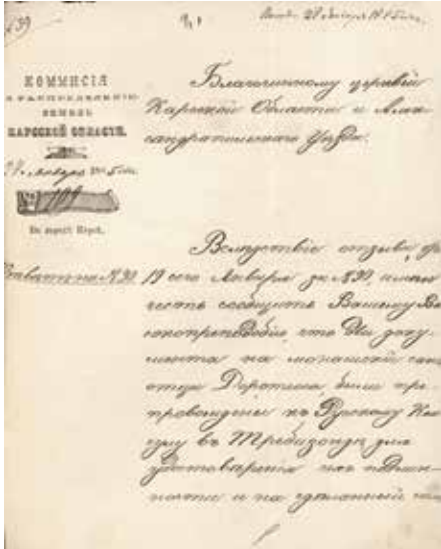 139
КОММИСІЯ
ПО РАСПРЕДѢЛЕНІЮ
ЗЕМЕЛЬ
КАРССКОЙ ОБЛАСТИ.
Января
109
Въ городѣ Карсѣ.
Благочинному церквей
Карской Области и Алек
сандропольскаго Уѣзда.
Отвѣтъ на №39
Вслѣдствіе отзыва, отъ
19 сего Января за №39, имѣю
честь сообщить Вашему Вы
сокопреподобію, что два доку
мента на монашескій санъ
отца Доротеа, были пре
провождены къ Русскому Кон
сулу въ Требизондъ для
удостоверенія ихъ подлин-
ности и на сдѣланный